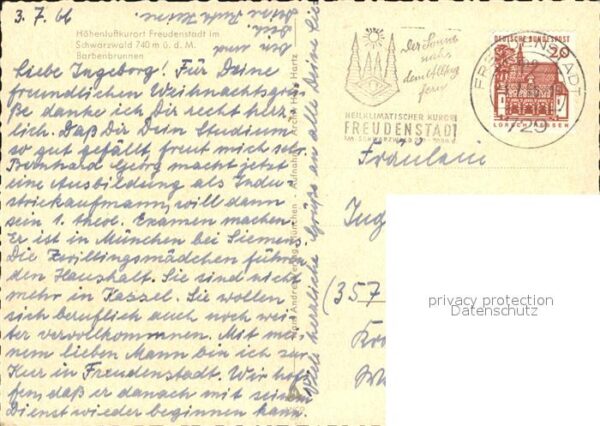 3. 7. 66
Höhenluftkurort Freudenstadt im
Schwarzwald 740 m ü. d. M.
Barbenbrunnen
Liebe Ingeborg! Für Deine
freundlichen Weihnachtsgrü-
ße danke ich Dir recht herz-
lich. Daß Dir Dein Studium
so gut gefällt freut mich sehr.
Bernhard Georg macht jetzt
eine Ausbildung als Indu-
striekaufmann, will dann
sein 1. theol. Examen machen.
Er ist in München bei Siemens.
Die Zwillingsmädchen führen
den Haushalt. Sie sind nicht
mehr in Kassel. Sie wollen
sich beruflich auch noch wei-
ter vervollkommnen. Mit mei-
nem lieben Mann bin ich zur
Kur in Freudenstadt. Wir hof-
fen, daß er danach mit seinem
Dienst wieder beginnen kann.
Viele herzliche Grüße an alle Deine Lie
Bin und
Dich
Der Sonne
nah
dem Alltag
fern
HEILKLIMATISCHER KURORT
FREUDENSTADT
IM SCHWARZWALD
FREUDENSTADT
DEUTSCHE BUNDESPOST
20
LORSCH/HESSEN
Fräulein
Ing
(357
Kro
privacy protection
Datenschutz